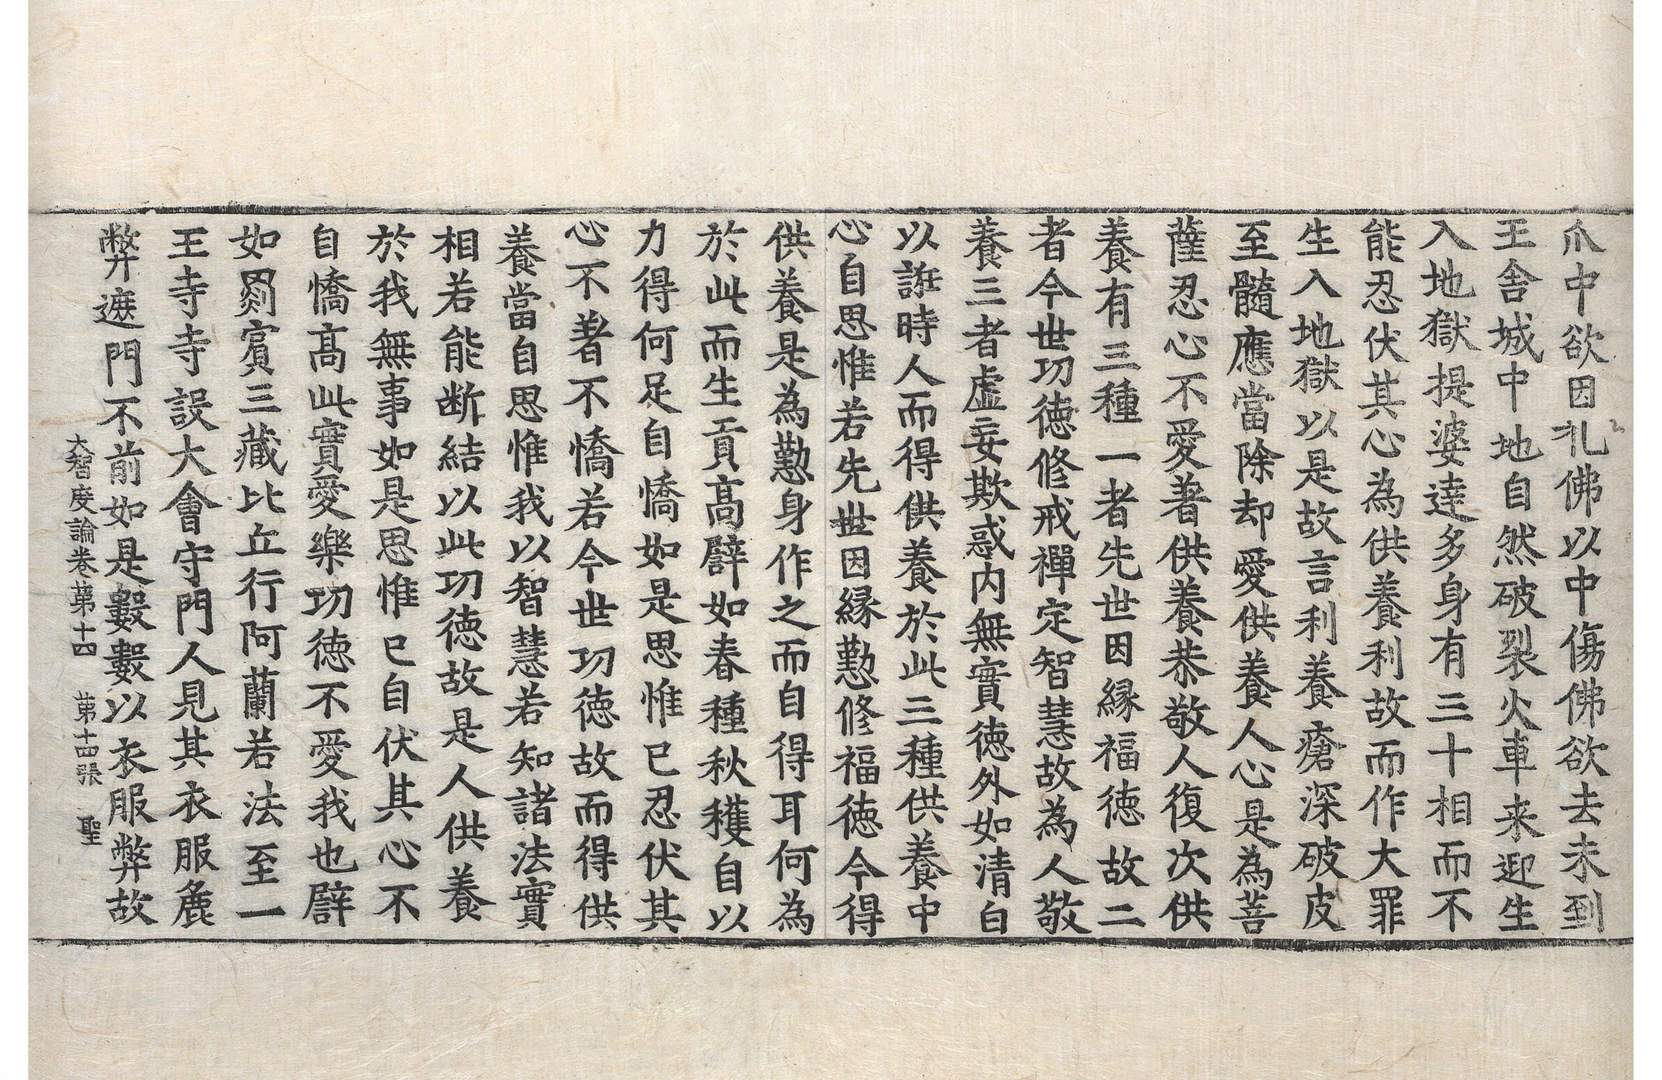 爪中欲因礼佛以中傷佛欲去未到
王舍城中地自然破裂火車来迎生
入地獄提婆達多身有三十相而不
能忍伏其心為供養利故而作大罪
生入地獄以是故言利養瘡深破皮
至髓應當除却愛供養人心是為菩
薩忍心不愛著供養恭敬人復次供
養有三種一者先世因緣福德故二
者今世功德修戒禪定智慧故為人敬
養三者虛妄欺惑内無實德外如清白
以誑時人而得供養於此三種供養中
心自思惟若先世因緣懃修福德今得
供養是為懃身作之而自得耳何為
於此而生貢高譬如春種秋穫自以
力得何足自憍如是思惟已忍伏其
心不著不憍若今世功德故而得供
養當自思惟我以智慧若知諸法實
相若能断結以此功德故是人供養
於我無事如是思惟已自伏其心不
自憍高此實愛樂功德不愛我也譬
如罽賓三藏比丘行阿蘭若法至一
王寺寺設大會守門人見其衣服麁
弊遮門不前如是數數以衣服弊故
大智度論卷第十四 第十四張 聖